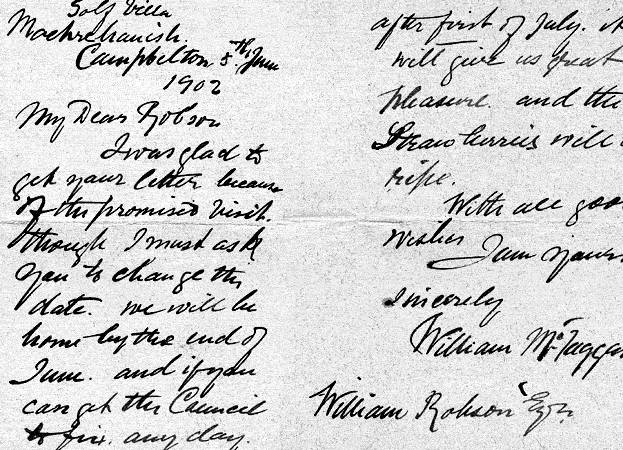 Golf Villa
Machrehanish.
Campbelton 5th June
1902
My Dear Robson
I was glad to
get your letter because
of the promised visit.
though I must ask
you to change the
date. we will be
home by the end of
June. and if you
can get the Council
to fix. any day.
after first of July. it
will give us great
pleasure. and the
Strawberries will
ripe.
With all good
wishes I am yours
Sincerely
William McTaggar
William Robson Esqr.